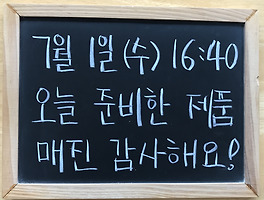 7월 1일(수) 16:40
오늘 준비한 제품
매진 감사해요!